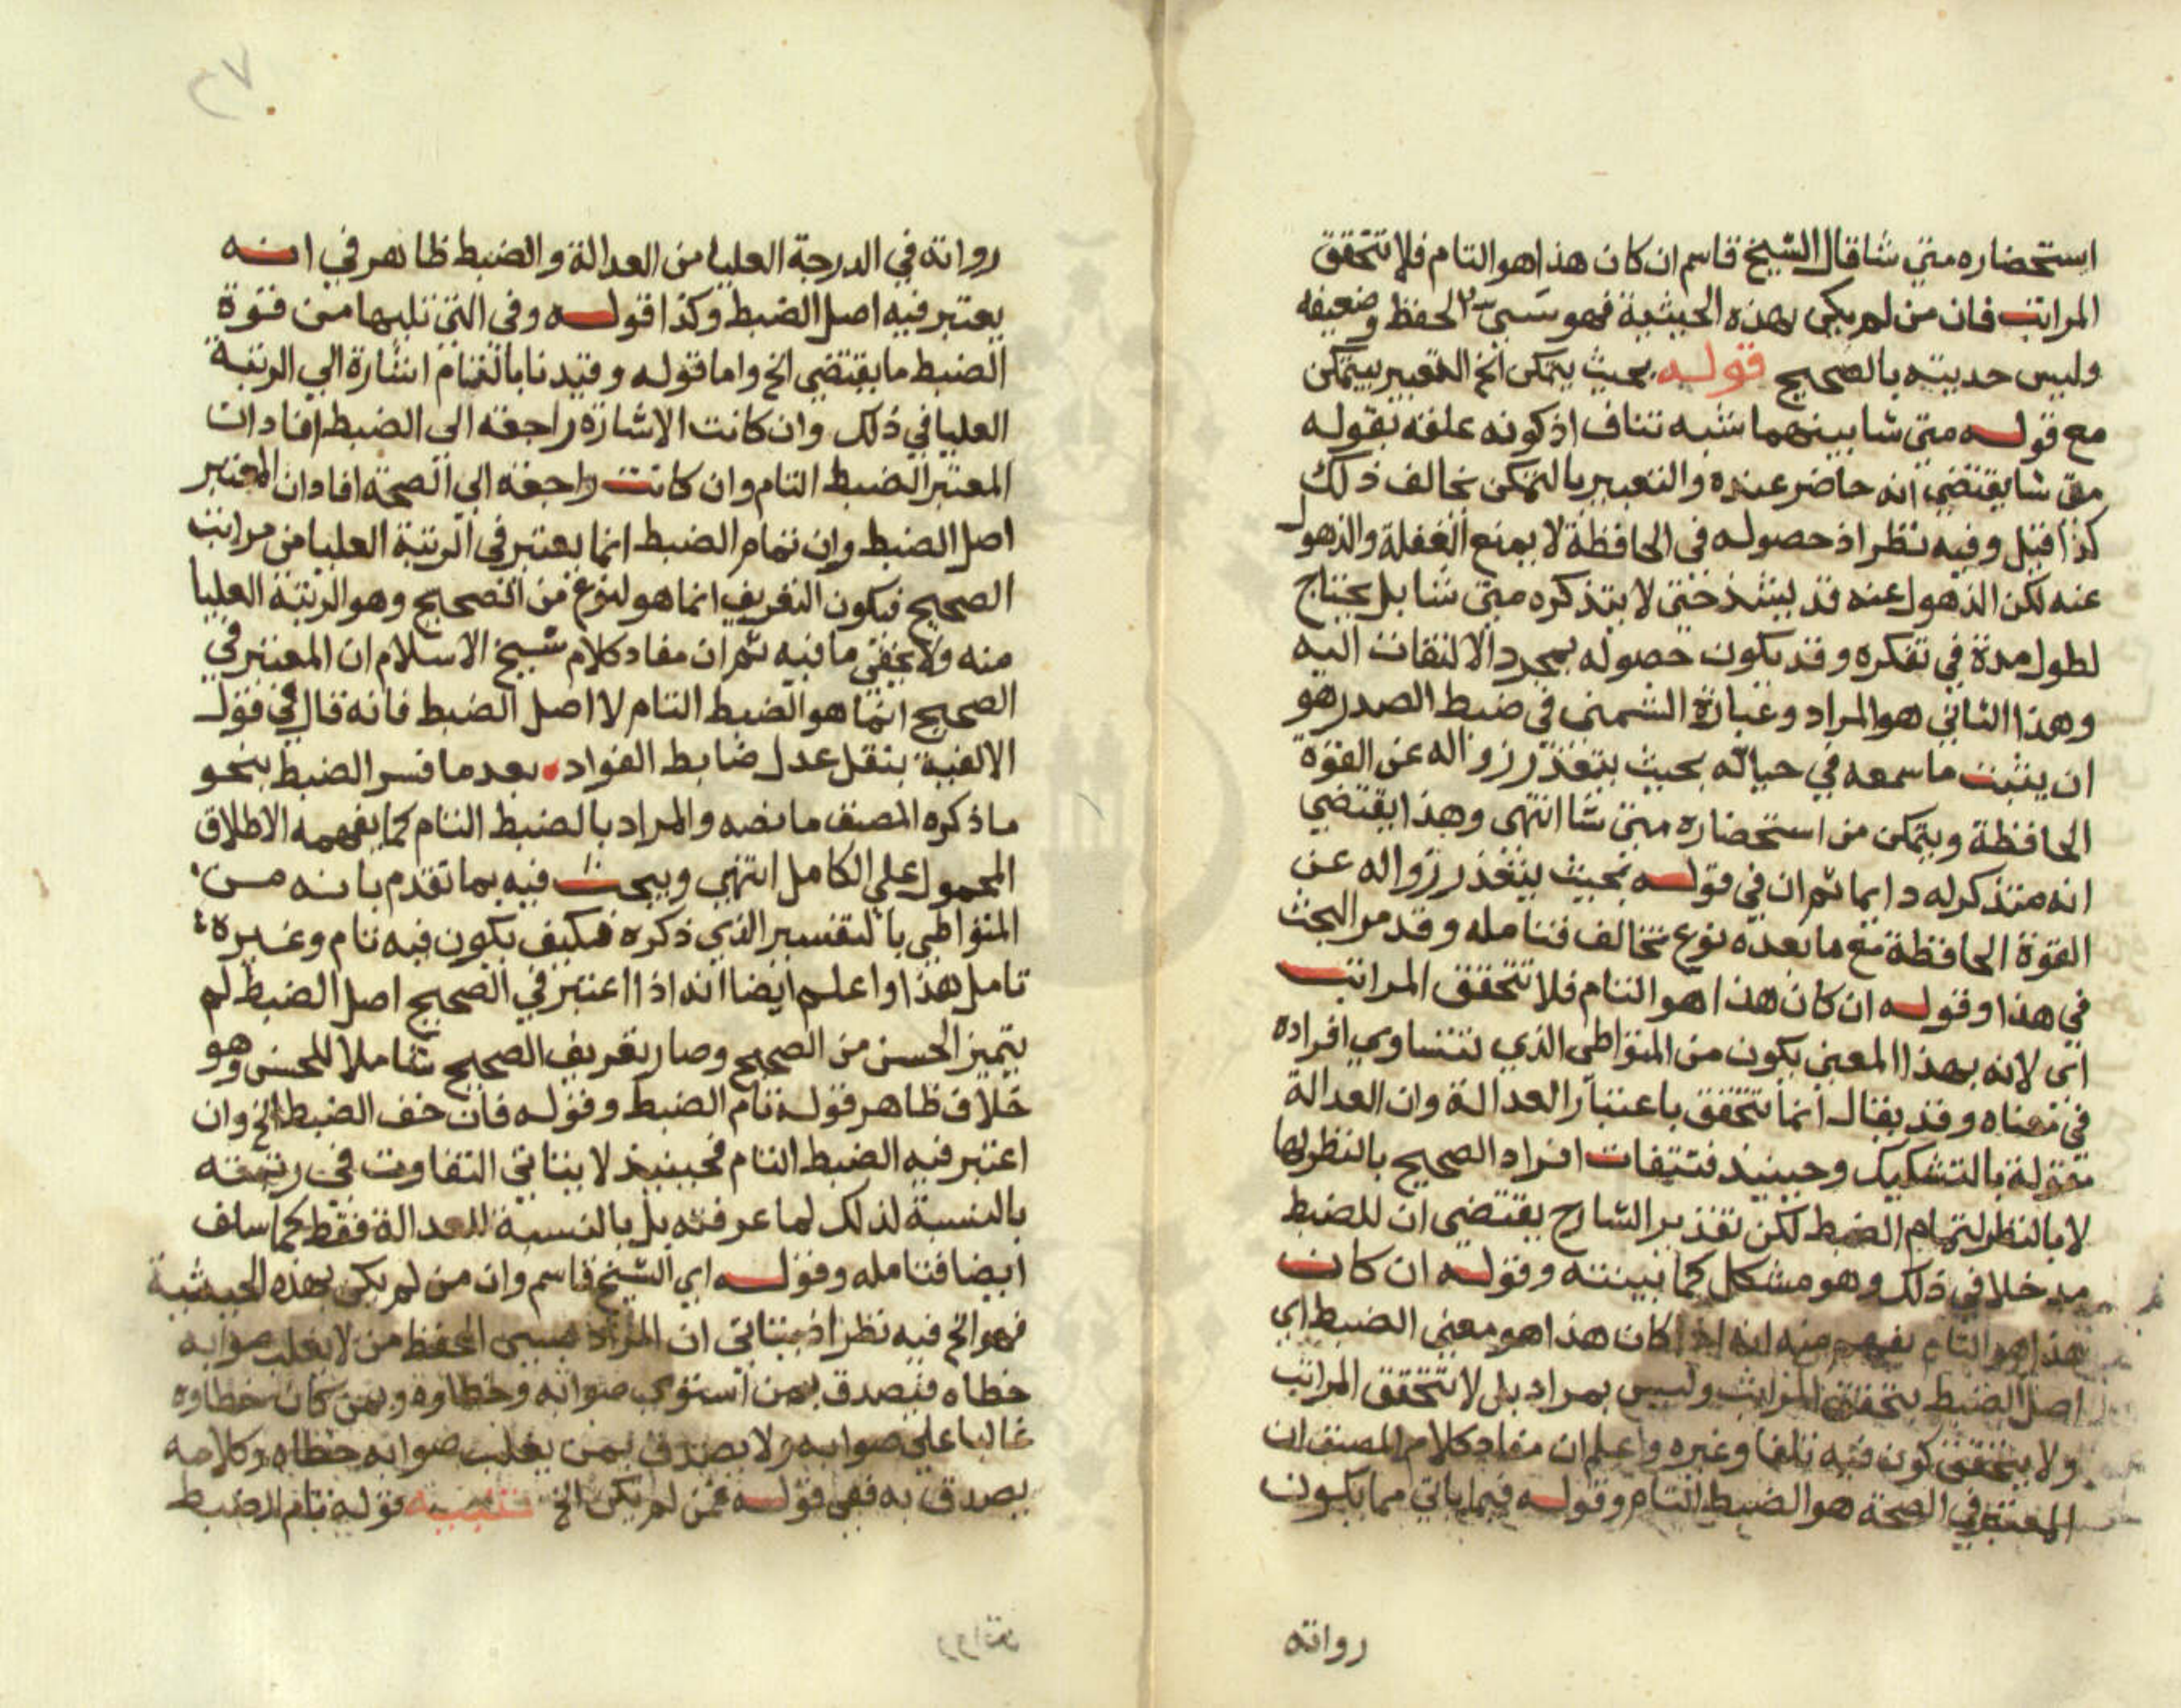 استحضاره متى شا قال الشيخ قاسم ان كان هذا هو التام فلا تتحقق
المراتب فان من لم يكن بهذه الحيثية فهو سيئ الحفظ وضعيفه
وليس حديثه بالصحيح قوله بحيث يتمكن الخ التعبير بيتمكن
مع قوله متى شا بينهما شبه تناف اذ كونه علقه بقوله
متى شا يقتضي انه حاضر عنده والتعبير بالتمكن يخالف ذلك
كذا قيل وفيه نظر اذ حصوله في الحافظة لا يمنع الغفلة والذهول
عنه لكن الذهول عنه قد يشتد حتى لا يتذكره متى شا بل يحتاج
لطول مدة في تفكره وقد يكون حصوله بمجرد الالتفات اليه
وهذا الثاني هو المراد وعبارة الشمني في ضبط الصدر هو
ان يثبت ما سمعه في خياله بحيث يتعذر زواله عن القوة
الحافظة ويتمكن من استحضاره متى شا انتهى وهذا يقتضي
انه متذكر له دايما ثم ان في قوله بحيث يتعذر زواله عن
القوة الحافظة مع ما بعده نوع تخالف فتامله وقد مر البحث
في هذا وقوله ان كان هذا هو التام فلا تتحقق المراتب
اي لانه بهذا المعنى يكون من المتواطي الذي تتساوي افراده
في معناه وقد يقال انما تتحقق باعتبار العدالة وان العدالة
مقولة بالتشكيك وحينيذ فتتفات افراد الصحيح بالنظر لها
لا بالنظر لتمام الضبط لكن تقدير الشارح يقتضي ان للضبط
مدخلا في ذلك وهو مشكل كما بينته وقوله ان كان
هذا هو التام يفهم منه انه اذا كان هذا هو معنى الضبط اي
اصل الضبط يتحقق المراتب وليس بمراد بل لا تتحقق المراتب
ولا يتحقق كون فيه تاما وغيره واعلم ان مفاد كلام المصنف ان
المعتبر في الصحة هو الضبط التام وقوله فيما ياتي مما يكون
رواته
رواته في الدرجة العليا من العدالة والضبط ظاهر في انه
يعتبر فيه اصل الضبط وكذا قوله وفي التي تليها من قوة
الضبط ما يقتضي الخ واما قوله وقيدنا بالتمام اشارة الي الرتبة
العليا في ذلك وان كانت الاشارة راجعة الى الضبط افاد ان
المعتبر الضبط التام وان كانت راجعة الي الصحة افاد ان المعتبر
اصل الضبط وان تمام الضبط انما يعتبر في الرتبة العليا من مراتب
الصحيح فيكون التعريف انما هو لنوع من الصحيح وهو الرتبة العليا
منه ولا يخفى ما فيه ثم ان مفاد كلام شيخ الاسلام ان المعتبر في
الصحيح انما هو الضبط التام لا اصل الضبط فانه قال في قول
الالفية بنقل عدل ضابط الفواد بعد ما فسر الضبط بنحو
ما ذكره المصنف ما نصه والمراد بالضبط التام كما يفهمه الاطلاق
المحمول علي الكامل انتهي ويبحث فيه بما تقدم بانه من
المتواطي بالتفسير الذي ذكره فكيف يكون فيه تام وغيره
تامل هذا واعلم ايضا انه اذا اعتبر في الصحيح اصل الضبط لم
يتميز الحسن من الصحيح وصار تعريف الصحيح شاملا للحسن وهو
خلاف ظاهر قوله تام الضبط وقوله فان خف الضبط الخ وان
اعتبر فيه الضبط التام فحينيذ لا يتاتي التفاوت في رتبته
بالنسبة لذلك لما عرفته بل بالنسبة للعدالة فقط كما سلف
ايضا فتامله وقوله اي الشيخ قاسم وان من لم يكن بهذه الحيثية
فهو الخ فيه نظر اذ يتاتى ان المراد بسيئ الحفظ من لا يغلب صوابه
خطاه فيصدق بمن استوى صوابه وخطاوه وبمن كان خطاوه
غالبا على صوابه ولا يصدق بمن يغلب صوابه خطاه وكلامه
يصدق به ففي قوله فمن لم يكن الخ تنبيه قوله تام الضبط